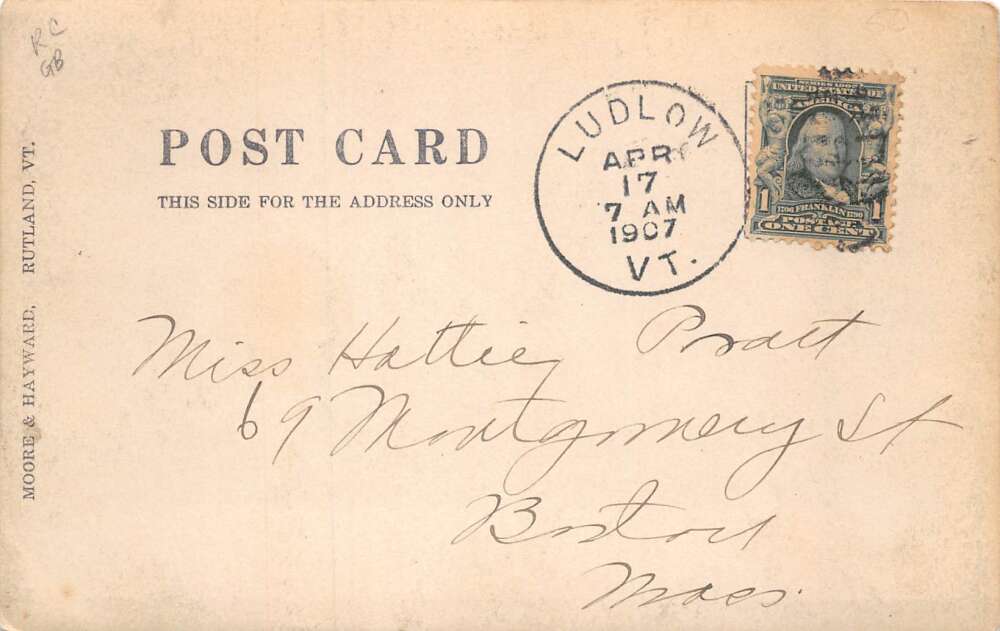 RC
GB
MOORE & HAYWARD, RUTLAND, VT.
POST CARD
THIS SIDE FOR THE ADDRESS ONLY
LUDLOW
APR
17
7 AM
1907
VT.
SERIES 1902
UNITED STATES OF
AMERICA
1706 FRANKLIN 1790
1 POSTAGE 1
ONE CENT
Miss Hattie Pratt
69 Montgomery St
Boston
Mass.